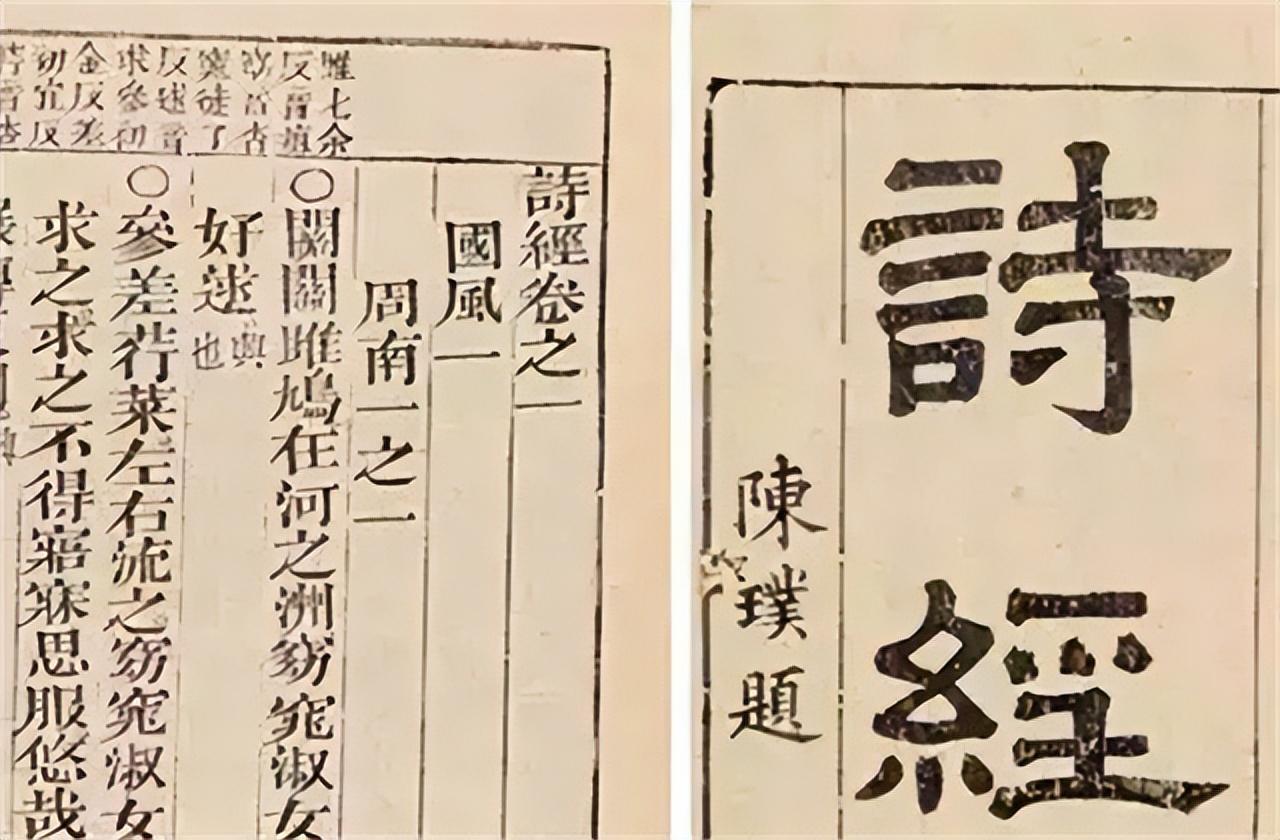 詩
經
陳璞題
雎七余
反音
窈音杳
窕徒了
反逑音
求參初
金反差
初宜反
荇音杏
詩經卷之一
國風一
周南一之一
○關關雎鳩在河之洲窈窕淑女
好逑興也
○參差荇菜左右流之窈窕淑女
求之求之不得寤寐思服悠哉